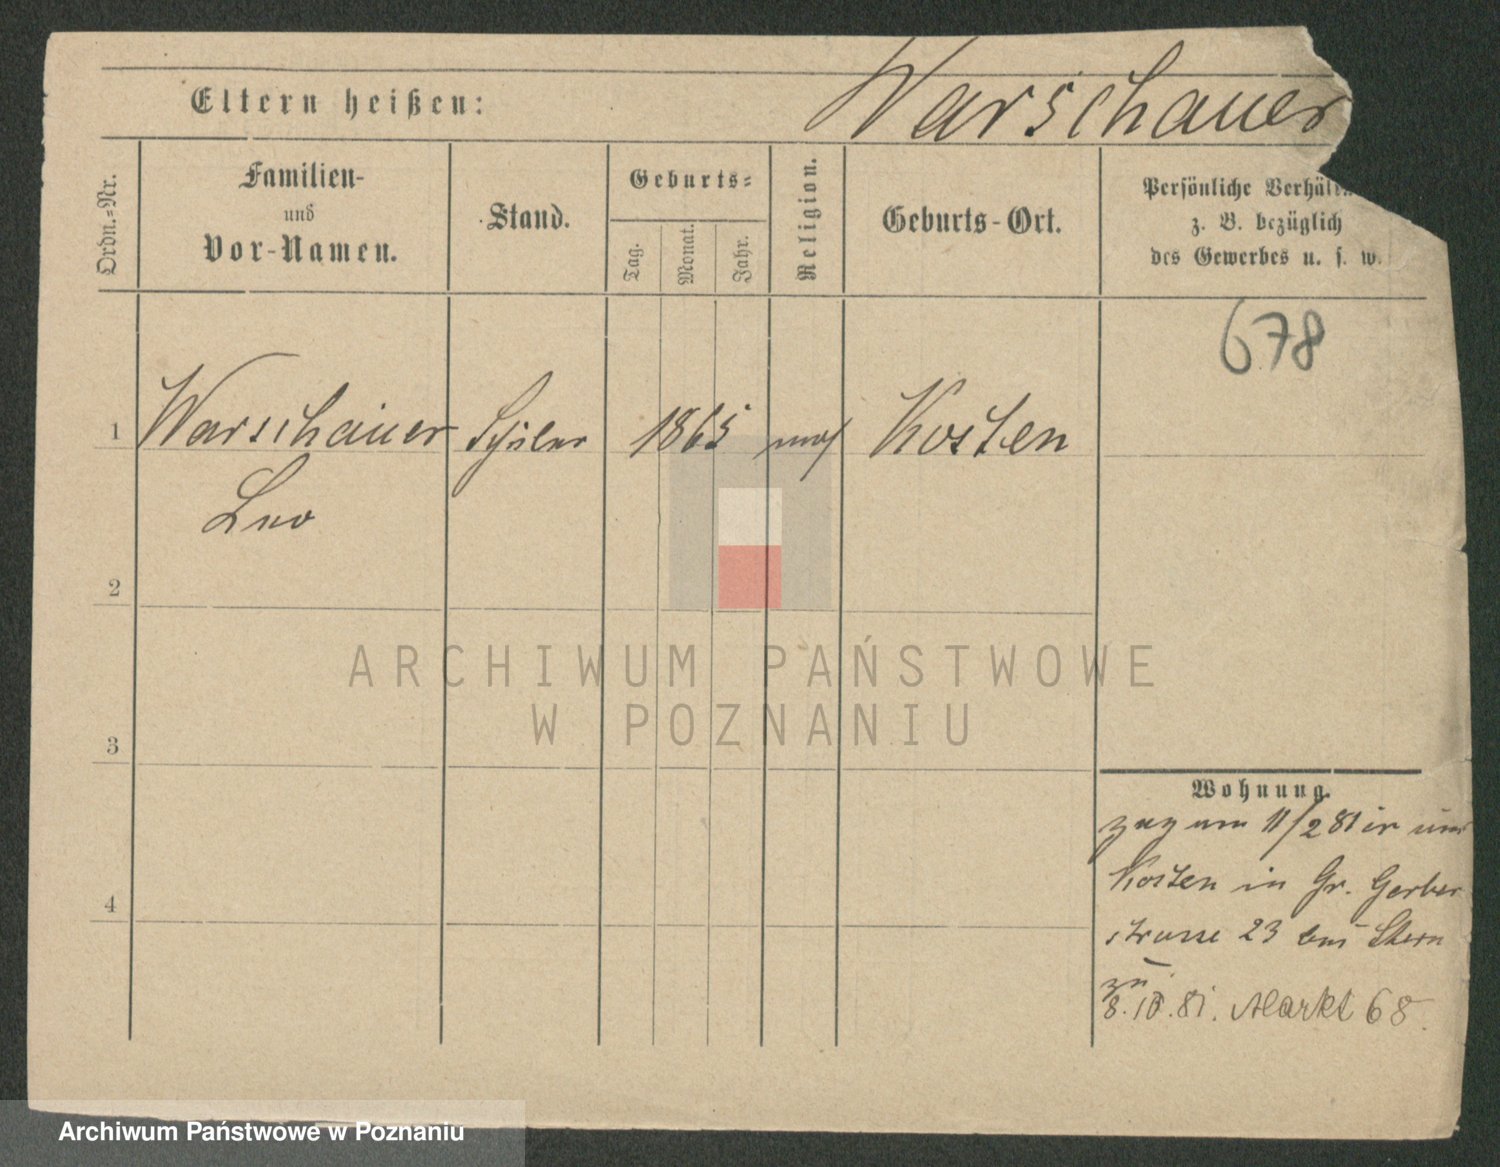 Eltern heißen:
Warschauer
Ordn.=Nr.
Familien-
und
Vor-Namen.
Stand.
Geburts=
Tag.
Monat.
Jahr.
Religion.
Geburts-Ort.
Persönliche Verhält
z. B. bezüglich
des Gewerbes u. s. w.
678
1
Warschauer
Schüler
1865
mos
Kosten
Leo
2
3
4
ARCHIWUM PAŃSTWOWE
W POZNANIU
Wohnung.
zug am 11/2 81 aus
Kosten in Gr. Gerber
strasse 23 bei Stern
zu
8.10.81. Markt 68.
Archiwum Państwowe w Poznaniu